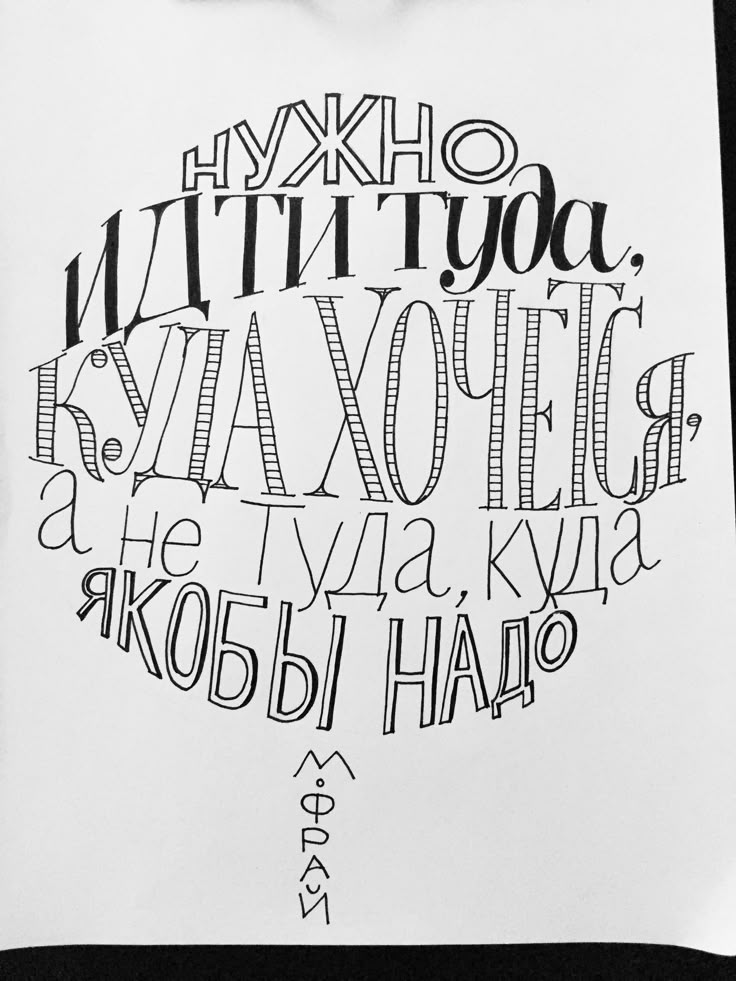 нужно
идти туда,
куда хочется,
а не туда, куда
якобы надо
м.фрай